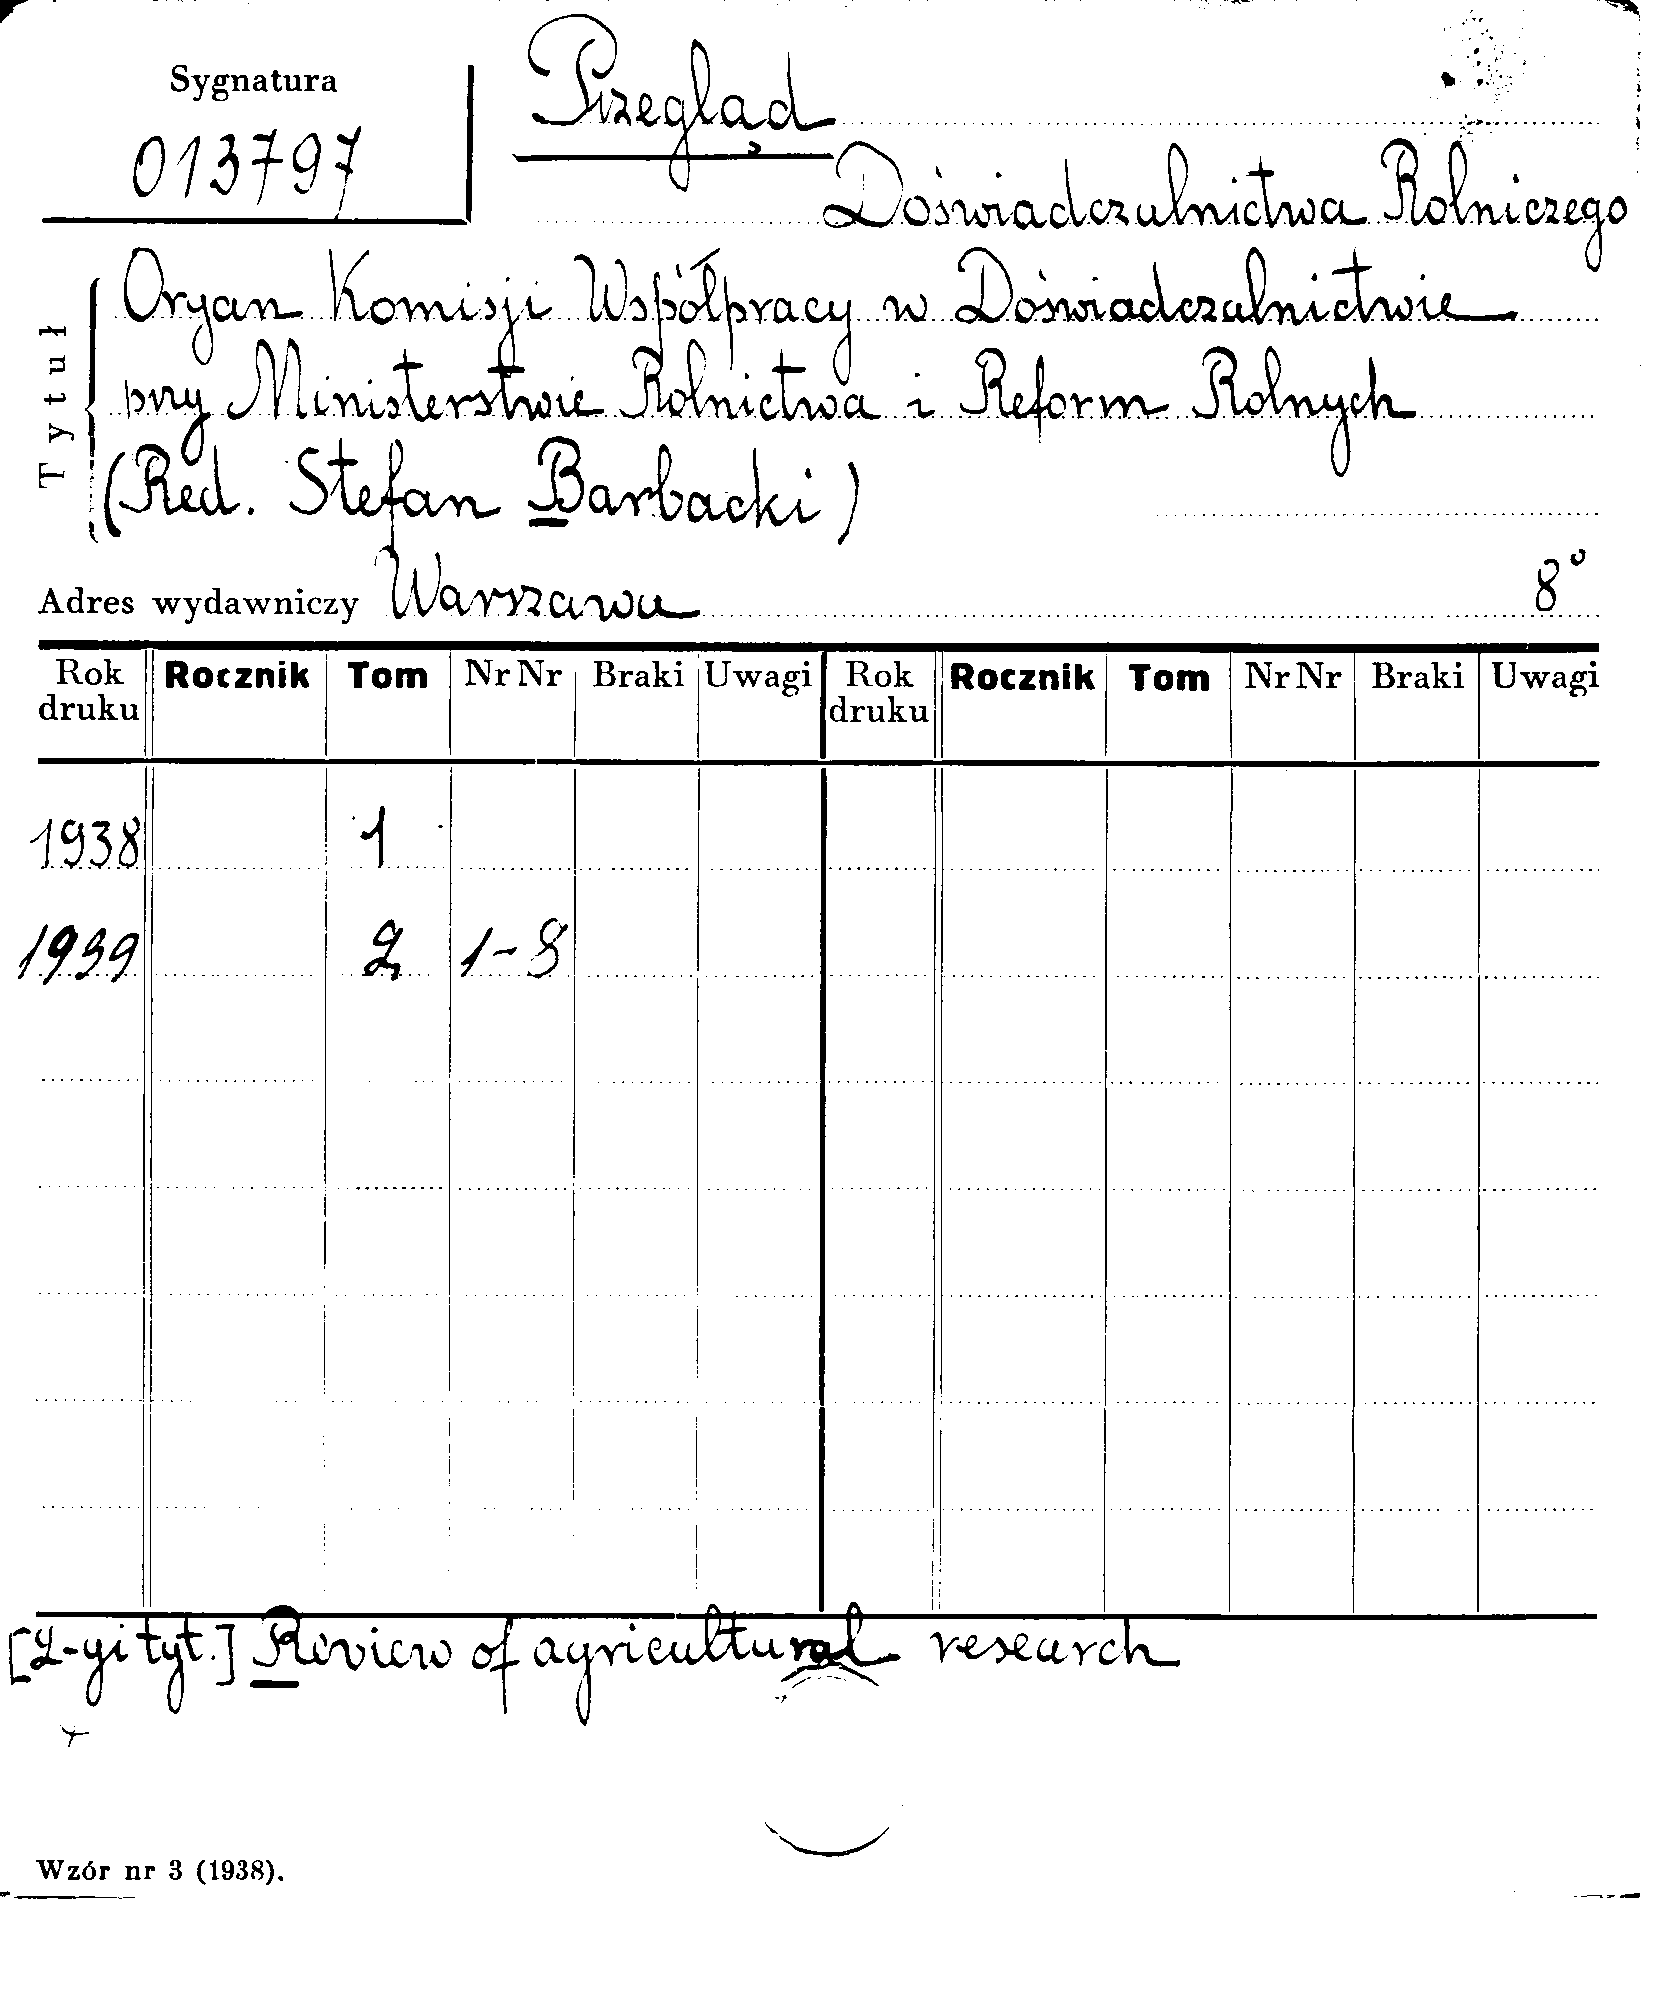 Sygnatura
013797
Przegląd
Doświadczalnictwa Rolniczego
Tytuł
Organ Komisji Współpracy w Doświadczalnictwie
przy Ministerstwie Rolnictwa i Reform Rolnych
(Red. Stefan Barbacki)
Adres wydawniczy Warszawa 8°
Rok druku Rocznik Tom Nr Nr Braki Uwagi Rok druku Rocznik Tom Nr Nr Braki Uwagi
1938 1
1939 2 1-8
[2-gi tyt.] Review of agricultural research
Wzór nr 3 (1938).